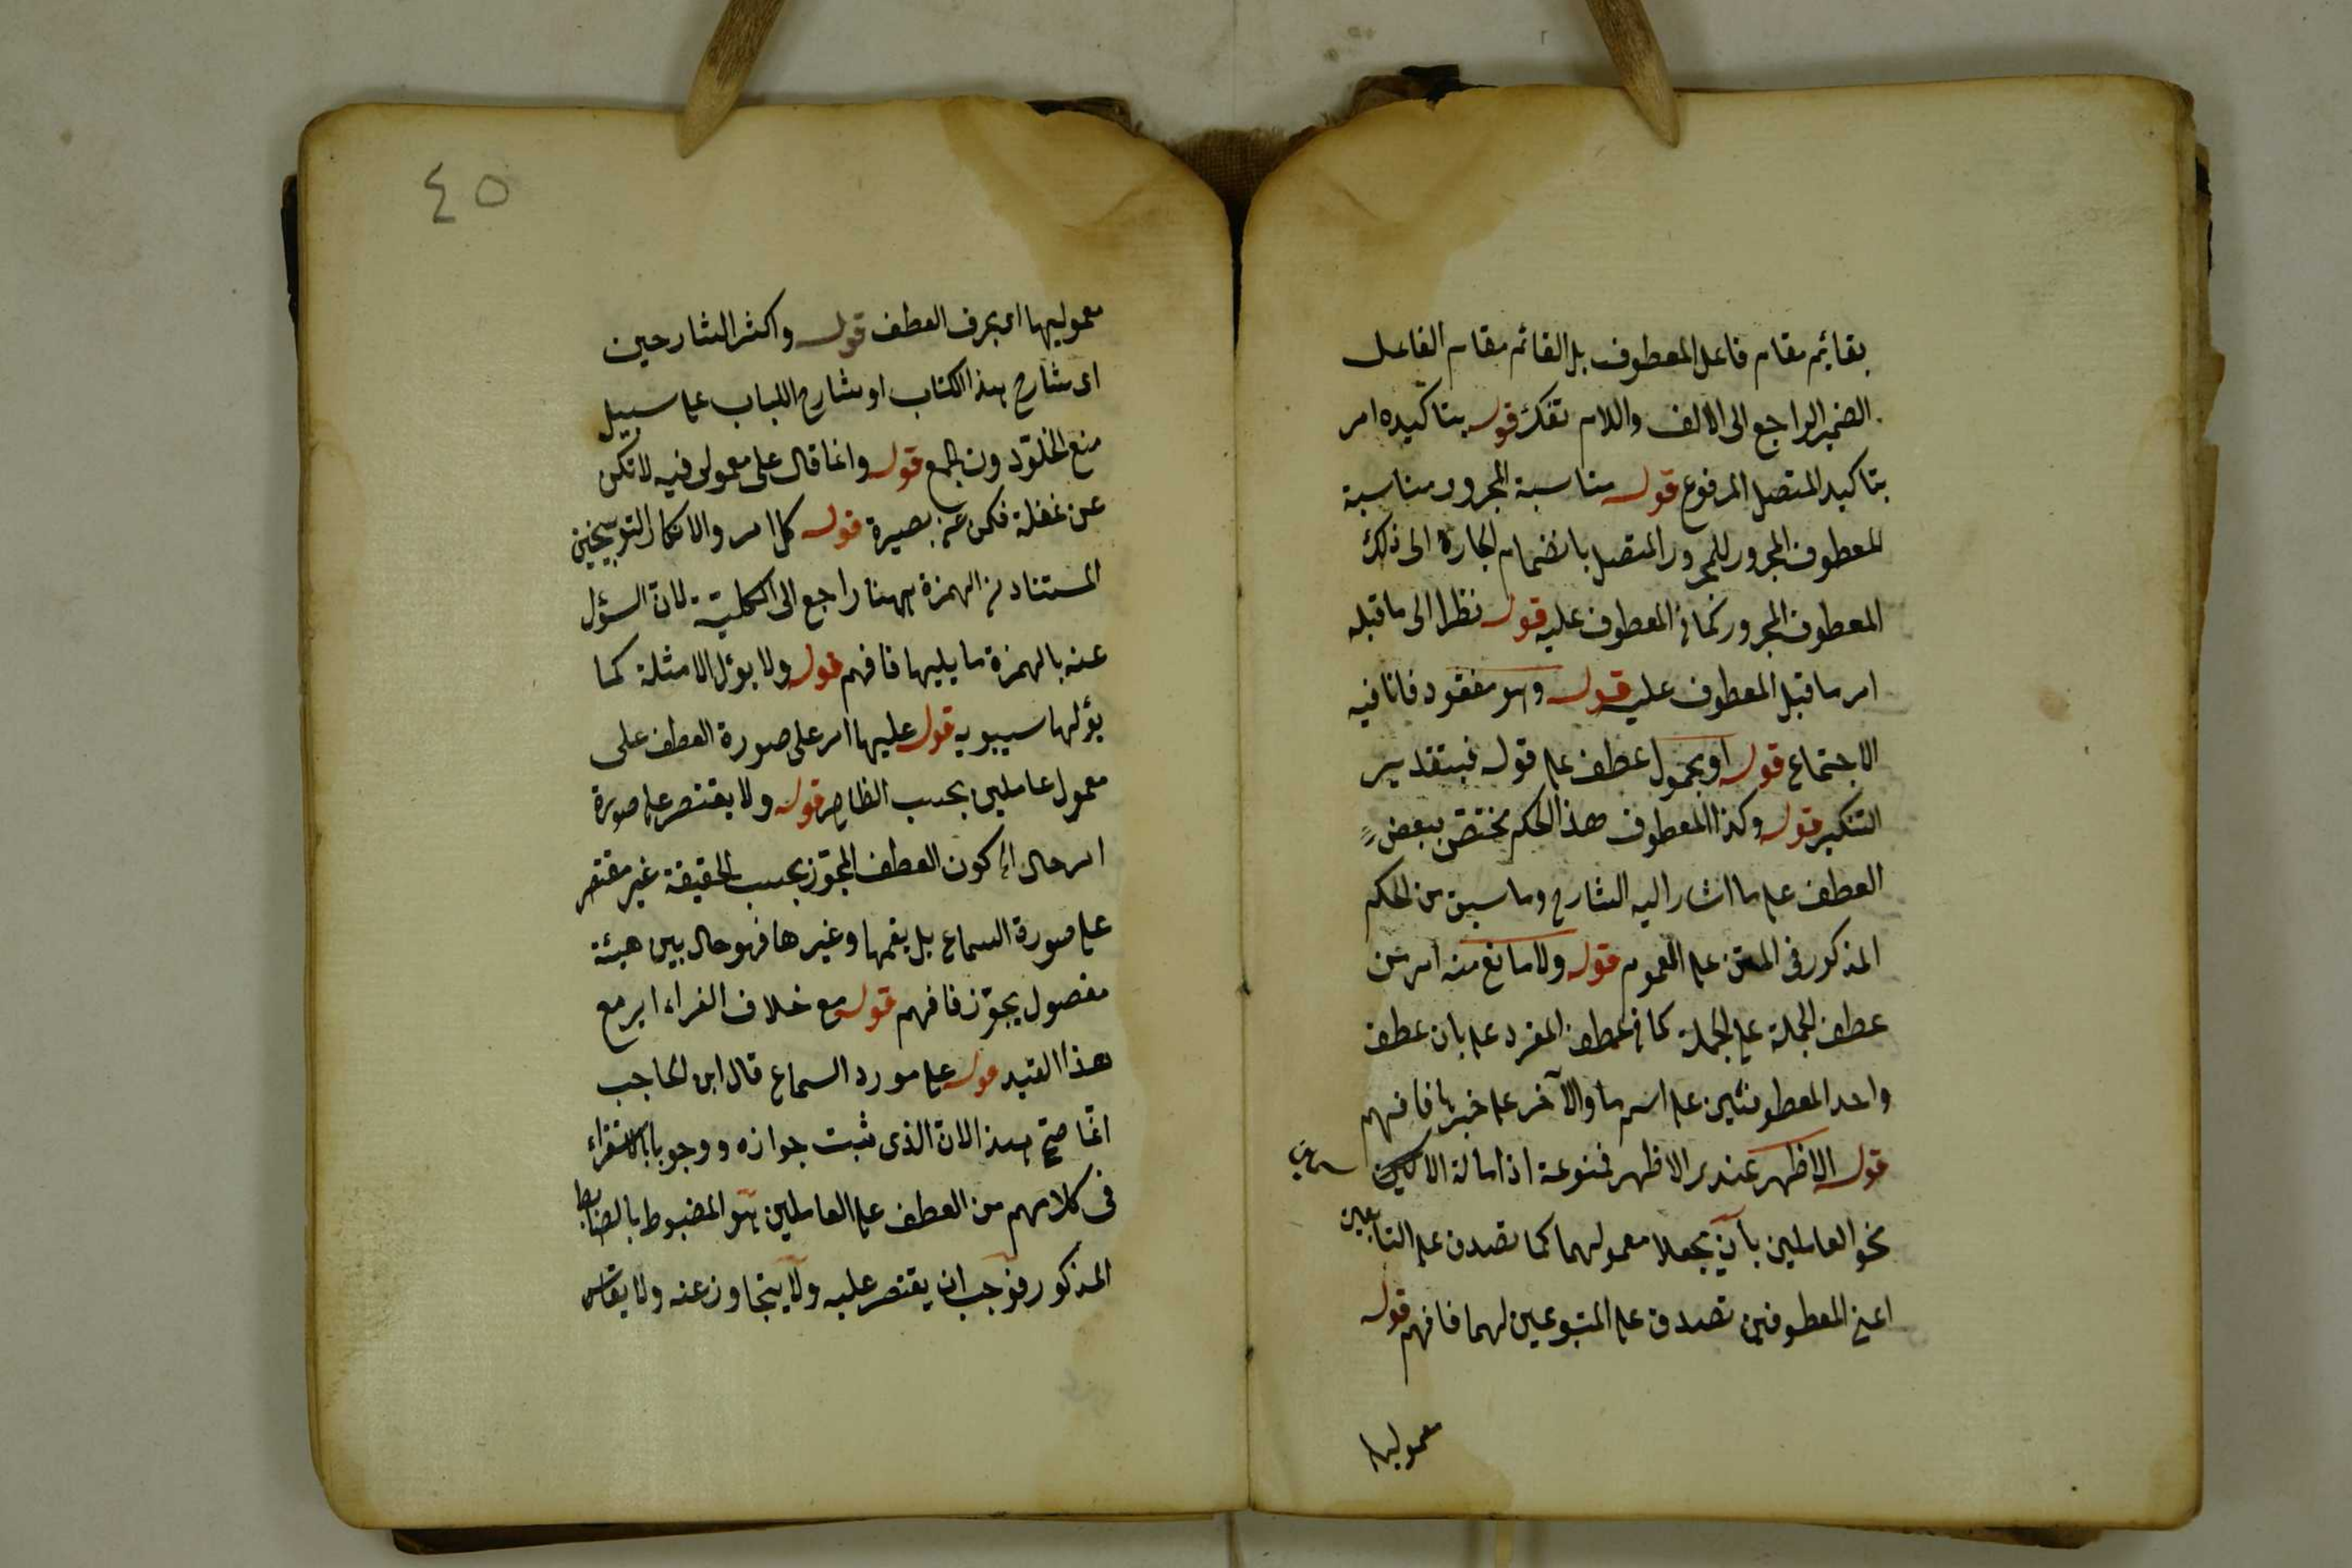 بقائم مقام فاعل المعطوف بل القائم مقام الفاعل
الضمير الراجع الى الالف واللام تفكر قوله بتاكيده اى
بتاكيد المتصل المرفوع قوله مناسبة المجرور مناسبة
المعطوف المجرور للمجرور المتصل بانضمام الجارة الى ذلك
المعطوف المجرور كما فى المعطوف عليه قوله نظرا الى ما قبله
اى ما قبل المعطوف عليه قوله وهو مفقود فانا فيه
الاجتماع قوله او بحمول عطف على قوله فبتقدير
التنكير قوله وكذا المعطوف هذا الحكم مختص ببعض
العطف على ما اشار اليه الشارح وما سبق من الحكم
المذكور فى المتن على العموم قوله ولا مانع منه اى من
عطف الجملة على الجملة كما فى عطف المفرد على بان عطف
واحد المعطوفين على اسم ما والآخر على خبرها فافهم
قوله الاظهر عندى الاظهر ممنوعة اذ امالة
نحو العاملين بأن يجعلا معمولهما كما تصدق على التابعين
اعنى المعطوفين تصدق على المتبوعين لهما فافهم قوله
معموليها
٤٥
معموليها اى بحرف العطف قوله واكثر الشارحين
اى شارح هذا الكتاب او شارح اللباب على سبيل
منع الخلو دون الجمع قوله وانما قال على معمولى فيه لا تكن
عن غفلة فكن عن بصيرة قوله كل امر والانكار التوبيخيين
المستفاد من الهمزة ههنا راجع الى الكلية لان السؤل
عنه بالهمزة ما يليها فافهم قوله ولا يؤل الامثلة كما
يؤلها سيبويه قوله عليها اى على صورة العطف على
معمول عاملين بحسب الظاهر قوله ولا يقتصر على صورة
اى حال كون العطف المجوز بحسب الحقيقة غير مقتصر
على صورة السماع بل يعمها وغيرها فهو حال بين هيئة
مفعول يجوز فافهم قوله مع خلاف الفراء اى مع
هذا القيد قوله على مورد السماع قال ابن الحاجب
انما صح هذا لان الذى ثبت جوازه ووجوبا بالاستقراء
فى كلامهم من العطف على العاملين هو المضبوط بالضابط
المذكور فوجب ان يقتصر عليه ولا يتجاوز عنه ولا يقاس